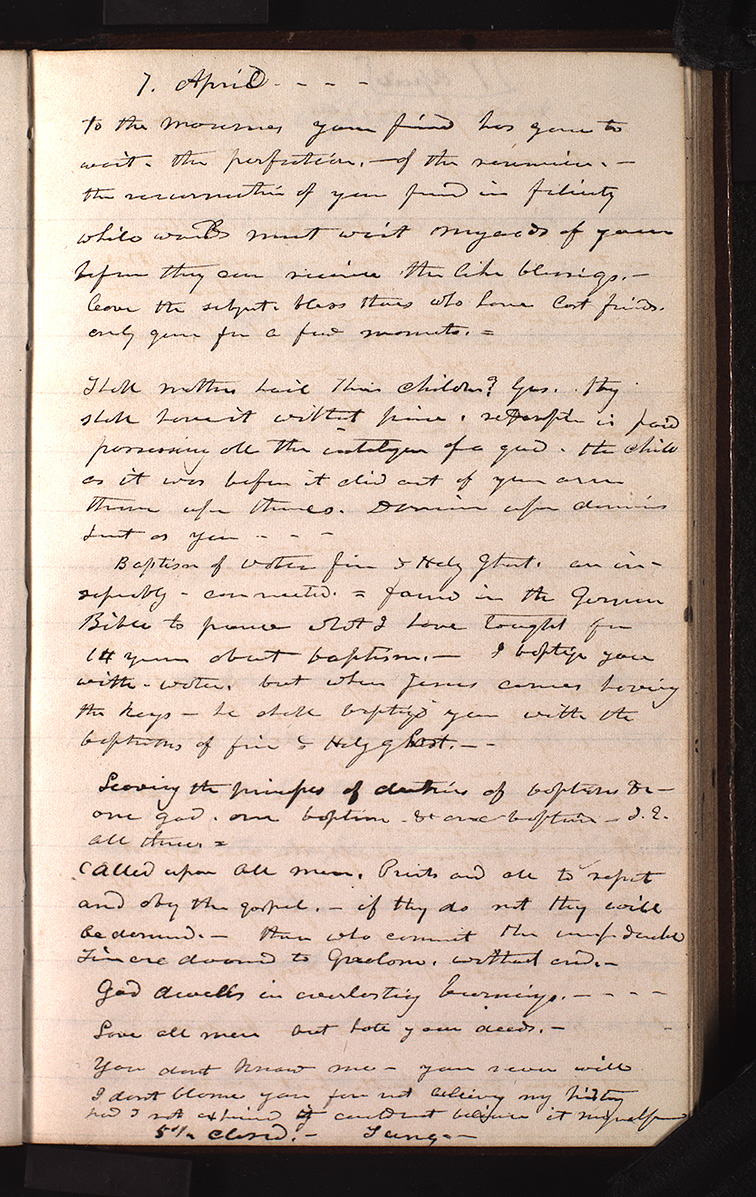 7. April - - - -
To the mournes your friend has gone to
wait. the perfection. — of the reunion. —
the resurrection of your friend in felicity
while worlds must wait myriads of years
before they can receive the like blessings. —
leave the subject. bless those who have lost friends.
only gone for a few moments. =
Shall mothers have their children? Yes. they
shall have it without price. redemption is paid
possessing all the intelligence of a god. the child
as it was before it died out of your arms
thrones upon thrones. Dominion upon dominion
Just as you - - - -
Baptism of water fire & Holy Ghost. are in-
seperably - connected. = found in the German
Bible to prove what I have taught for
14 years about baptism. — I baptize you
with - water. but when Jesus comes having
the keys — he shall baptize you with the
baptism of fire & Holy ghost. — -
Leaving the principles of doctrine of baptism &c —
one god. one baptism - & one baptism — I.E.
all three. =
Called upon all men. Priests and all to repent
and obey the gospel. — if they do not they will
be damned. — those who commit the unpardonable
sin are doomed to Gnolom. without end. —
God dwells in everlasting burnings. — - - -
Love all men but hate your deeds. —
You dont know me — you never will
I dont blame you for not believing my history
had I not experienced it could not believe it myself
5½ closed. — Sung. —